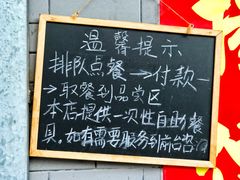 温馨提示
排队点餐→付款→
→取餐到品尝区
本店提供一次性自助餐
具。如有需要服务到前台咨询